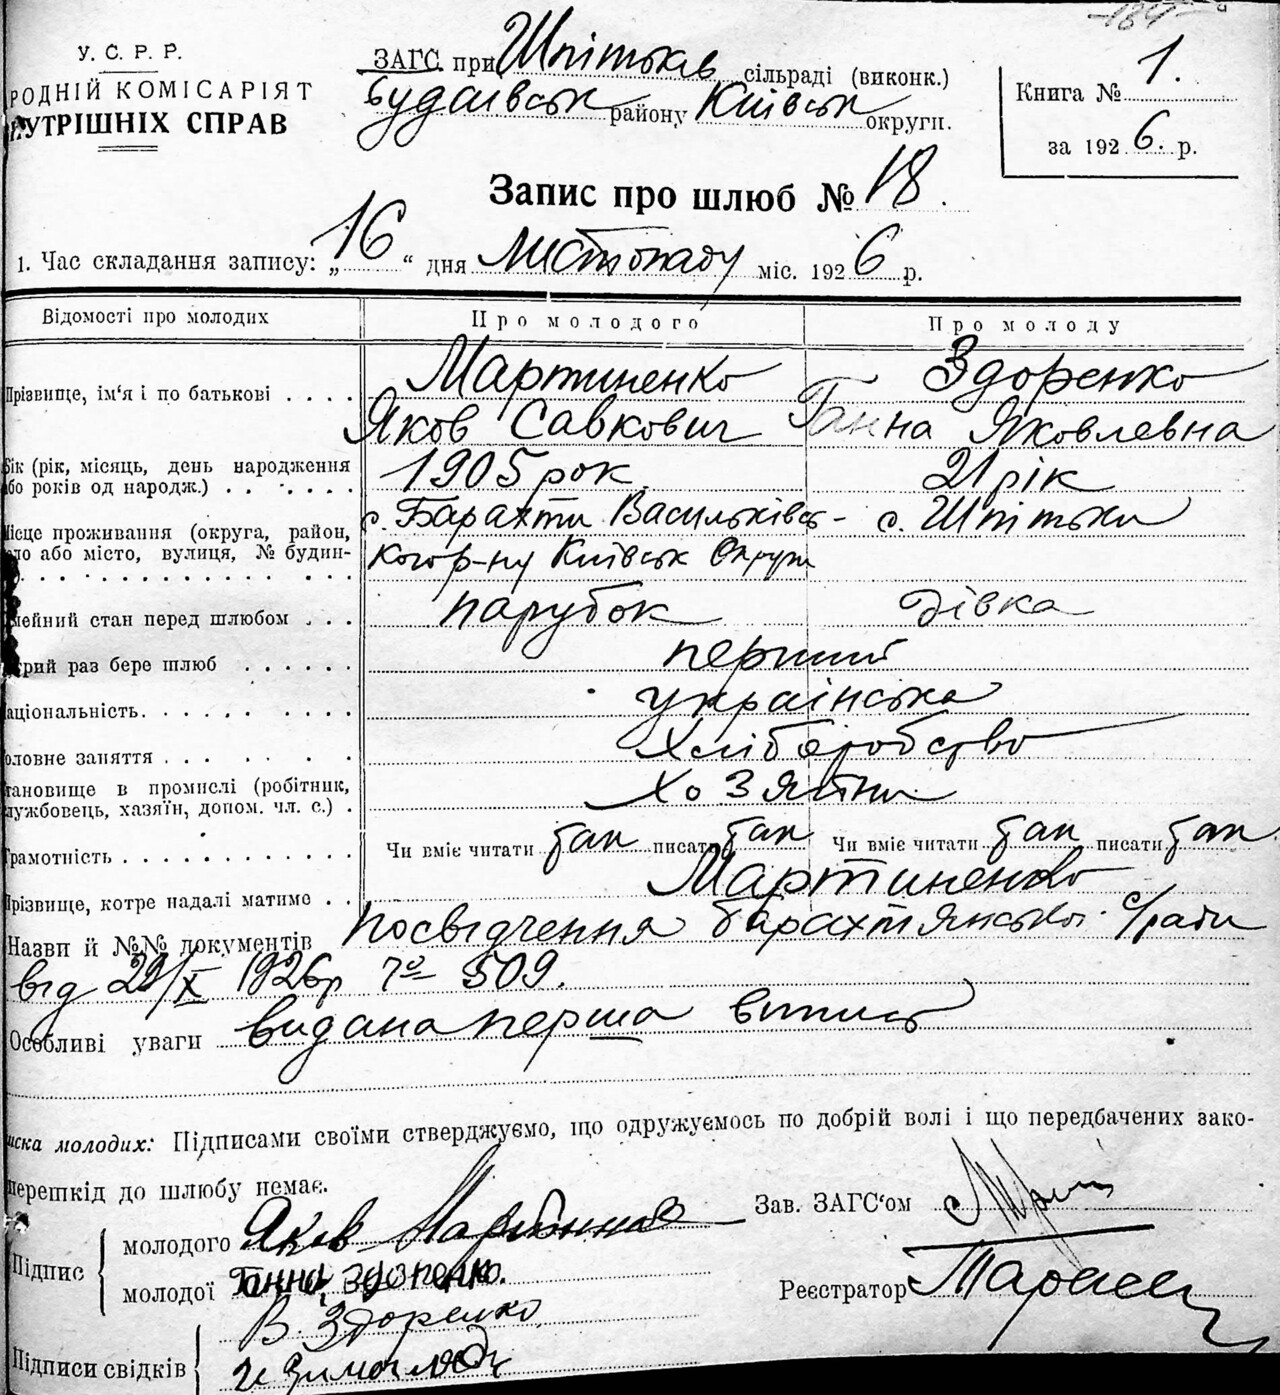 У. С. Р. Р.
РОДНІЙ КОМІСАРІЯТ
УТРІШНІХ СПРАВ
ЗАГС при Шпітьків сільраді (виконк.)
Будаївськ району Київськ округи.
Книга № 1.
за 1926. р.
Запис про шлюб № 18.
1. Час складання запису: „16“ дня листопаду міс. 1926 р.
Відомості про молодих Про молодого Про молоду
Прізвище, ім'я і по батькові . . . . Мартиненко Здоренко
Яков Савкович Ганна Яковлевна
Вік (рік, місяць, день народження 1905 рок. 21 рік
або років од народж.) . . . . . . .
Місце проживання (округа, район, с. Барахти Васильківсь- с. Шпітьки
ло або місто, вулиця, № будин- кого р-ну Київськ Округи
мейний стан перед шлюбом . . . парубок дівка
трий раз бере шлюб . . . . . . перший
аціональність. . . . . . . . . . українська
оловне заняття . . . . . . . хліборобство
тановище в промислі (робітник, хозяїни
лужбовець, хазяїн, допом. чл. с.) .
Грамотність . . . . . . . . . . . . Чи вміє читати так писати так Чи вміє читати так писати так
Прізвище, котре надалі матиме . . Мартиненко
Назви й №№ документів посвідчення Барахтянської с/ради
від 29/X 1926р № 509.
Особливі уваги видана перша випись
иска молодих: Підписами своїми стверджуємо, що одружуємось по добрій волі і що передбачених зако-
перешкід до шлюбу немає.
Зав. ЗАГС'ом
Підпис молодого Яков Мартиненко
молодої Ганна Здоренко.
Реєстратор
Підписи свідків В. Здоренко